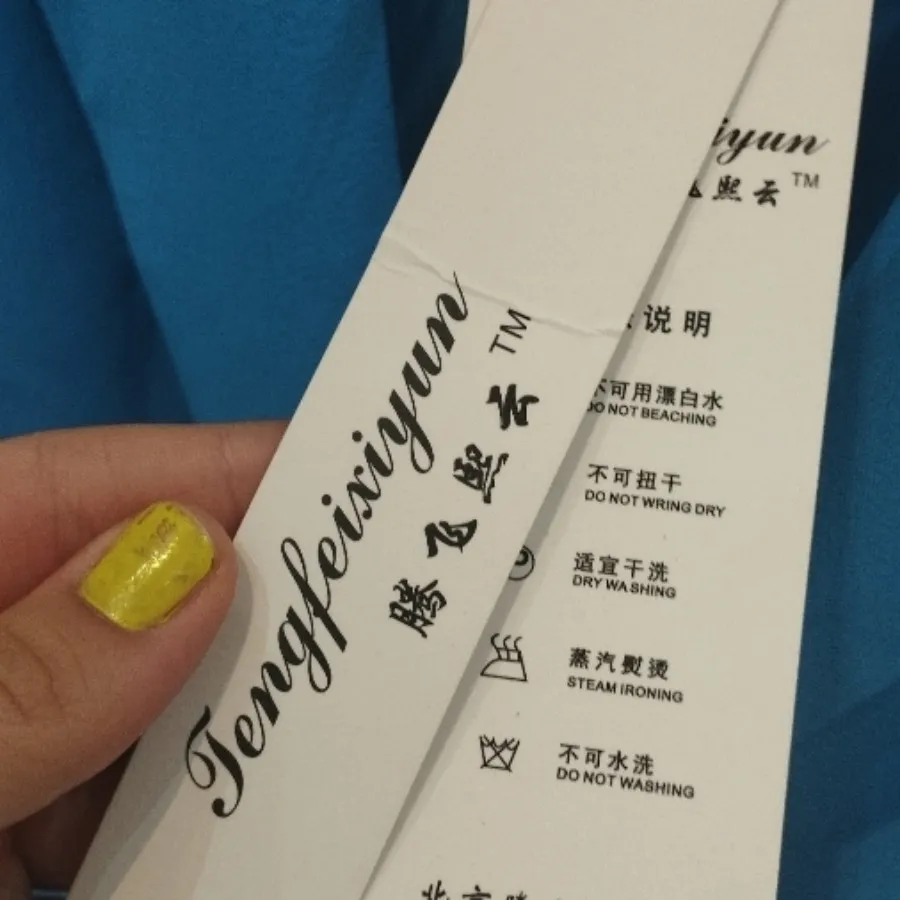 Tengfeixiyun
腾飞熙云 TM
iyun
熙云 TM
说明
不可用漂白水
DO NOT BEACHING
不可扭干
DO NOT WRING DRY
适宜干洗
DRY WASHING
蒸汽熨烫
STEAM IRONING
不可水洗
DO NOT WASHING
北京